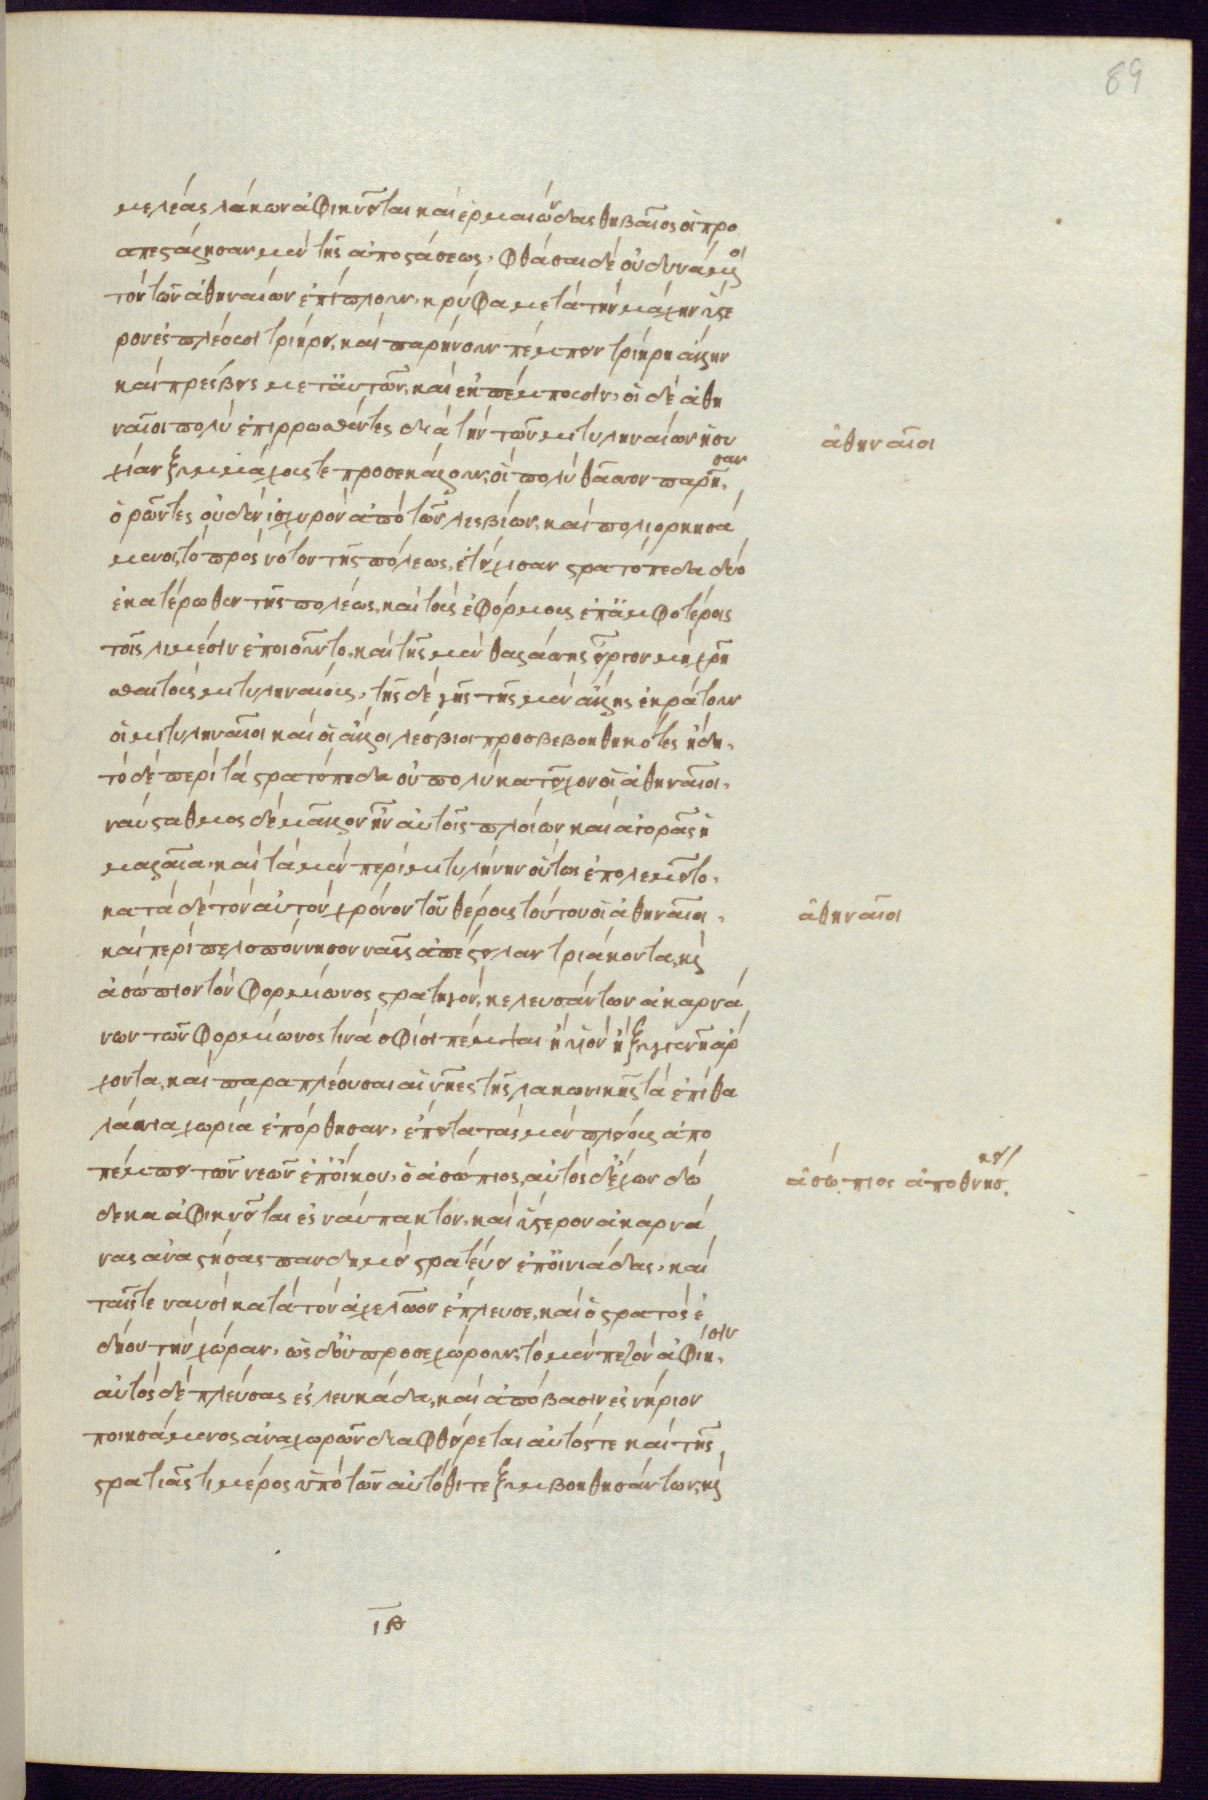 89
μελέας λάκων ἀφικνεῖται καὶ ἑρμαιώνδας θηβαῖος οἳ προ
απεστάλησαν μὲν τῆς ἀποστάσεως, φθάσαι δὲ οὐ δυνάμενοι
τὸν τῶν ἀθηναίων ἐπίπλουν, κρύφα μετὰ τὴν μάχην ὕστε
ρον ἐσπλέουσι τριήρει, καὶ παρήνουν πέμπειν τριήρη ἄλλην
καὶ πρέσβεις μετ' αὐτῶν, καὶ ἐκπέμπουσιν, οἱ δὲ ἀθη
ναῖοι πολὺ ἐπιρρωσθέντες διὰ τὴν τῶν μιτυληναίων ἡσυ
χίαν ξυμμάχους τε προσεκάλουν, οἳ πολὺ θᾶσσον παρῆσαν,
ὁρῶντες οὐδὲν ἰσχυρὸν ἀπὸ τῶν λεσβίων, καὶ πολιορκησά
μενοι, τὸ πρὸς νότον τῆς πόλεως, ἐτείχισαν στρατόπεδα δύο
ἑκατέρωθεν τῆς πολέως, καὶ τοὺς ἐφόρμους ἐπ' ἀμφοτέροις
τοῖς λιμέσιν ἐποιοῦντο, καὶ τῆς μὲν θαλάσσης εἶργον μὴ χρῆ
σθαι τοὺς μιτυληναίους, τῆς δὲ γῆς τῆς μὲν ἄλλης ἐκράτουν
οἱ μιτυληναῖοι καὶ οἱ ἄλλοι λέσβιοι προσβεβοηθηκότες ἤδη,
τὸ δὲ περὶ τὰ στρατόπεδα οὐ πολὺ κατεῖχον οἱ ἀθηναῖοι,
ναύσταθμος δὲ μᾶλλον ἦν αὐτοῖς πλοίων καὶ ἀγορᾶς ἡ
μαλέα, καὶ τὰ μὲν περὶ μιτυλήνην οὕτως ἐπολεμεῖτο,
κατὰ δὲ τὸν αὐτὸν χρόνον τοῦ θέρους τούτου οἱ ἀθηναῖοι,
καὶ περὶ πελοπόννησον ναῦς ἀπέστειλαν τριάκοντα, καὶ
ἀσώπιον τὸν φορμίωνος στρατηγόν, κελευσάντων ἀκαρνά
νων τῶν φορμίωνος τινὰ σφίσι πέμψαι ἢ υἱὸν ἢ ξυγγενῆ ἄρ
χοντα, καὶ παραπλέουσαι αἱ νῆες τῆς λακωνικῆς τὰ ἐπιθα
λάσσια χωρία ἐπόρθησαν, ἔπειτα τὰς μὲν πλείους ἀπο
πέμπει τῶν νεῶν ἐπ' οἴκου, ὁ ἀσώπιος, αὐτὸς δ' ἔχων δώ
δεκα ἀφικνεῖται ἐς ναύπακτον, καὶ ὕστερον ἀκαρνά
νας ἀναστήσας πανδημεὶ στρατεύει ἐπ' οἰνιάδας, καὶ
ταῖς τε ναυσὶ κατὰ τὸν ἀχελῷον ἔπλευσε, καὶ ὁ στρατὸς ἐ
δῄου τὴν χώραν, ὡς δ' οὐ προσεχώρουν, τὸ μὲν πεζὸν ἀφίησιν,
αὐτὸς δὲ πλεύσας ἐς λευκάδα, καὶ ἀπόβασιν ἐς νήρικον
ποιησάμενος ἀναχωρῶν διαφθείρεται αὐτός τε καὶ τῆς
στρατιᾶς τι μέρος ὑπὸ τῶν αὐτόθι τε ξυμβοηθησάντων, καὶ
ἀθηναῖοι
ἀθηναῖοι
ἀσώπιος ἀποθνήσκει